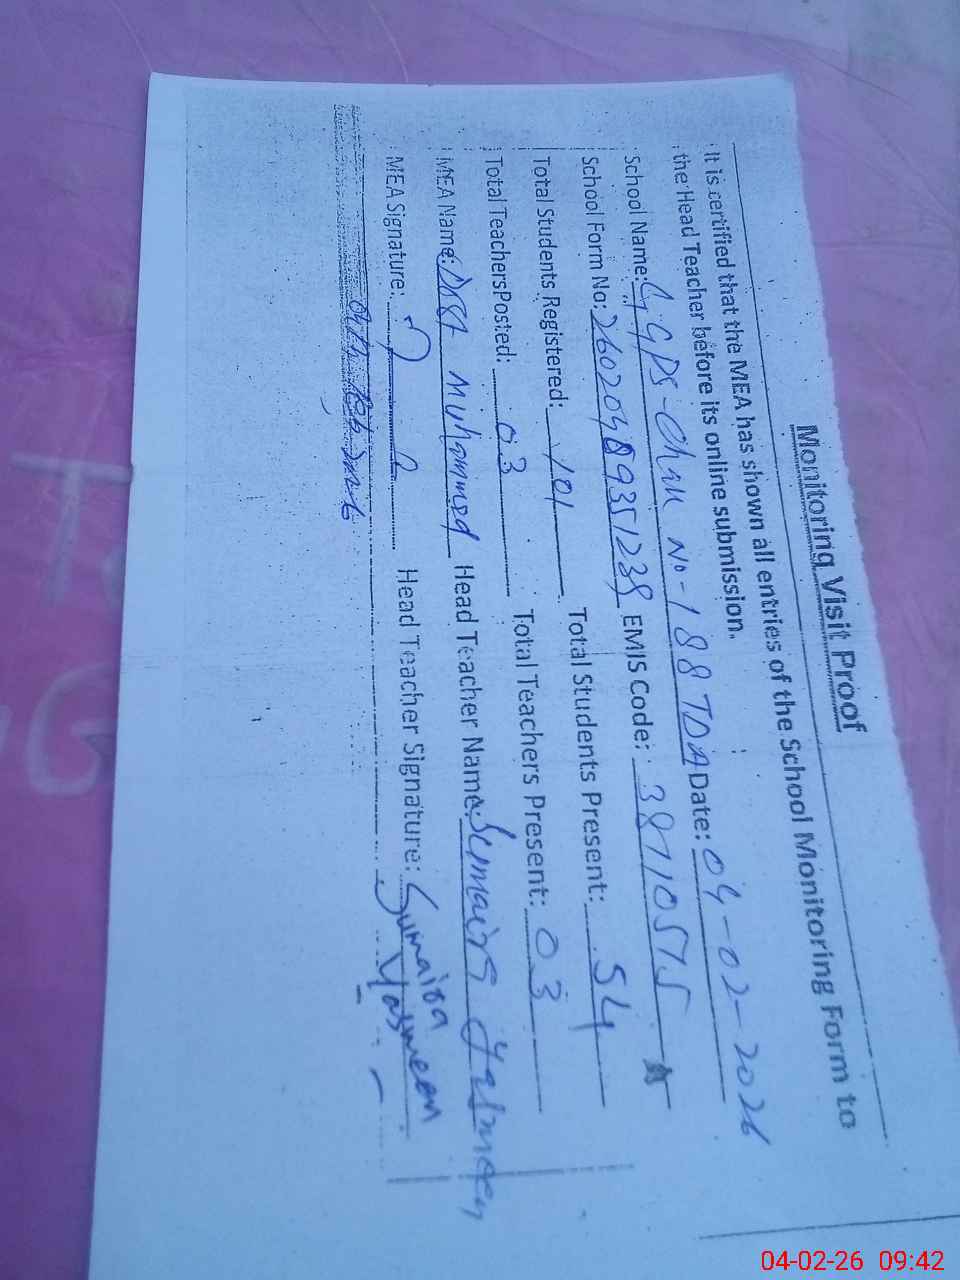 Monitoring Visit Proof
It is certified that the MEA has shown all entries of the School Monitoring Form to
the Head Teacher before its online submission.
School Name: GGPS-Chak No-188 TDA Date: 04-02-2026
School Form No: EMIS Code:
Total Students Registered: 101 Total Students Present: 54
Total Teachers Posted: 03 Total Teachers Present: 03
MEA Name: Muhammed Head Teacher Name: Sumaira Yasmeen
MEA Signature: Head Teacher Signature: Sumaira
Yasmeen
04-02-26 09:42